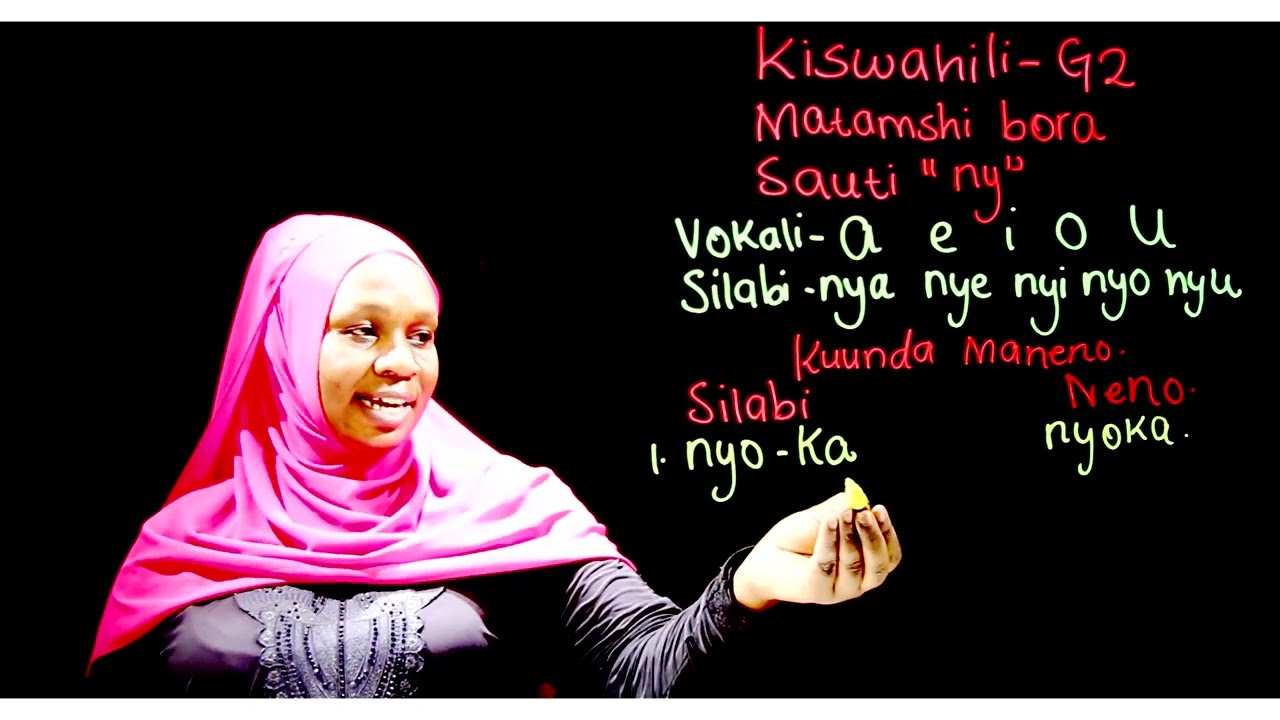 Kiswahili- G2
Matamshi bora
Sauti "ny"
Vokali- a e i o u
Silabi -nya nye nyi nyo nyu
Kuunda Maneno.
Silabi Neno.
1. nyo-Ka nyoka.